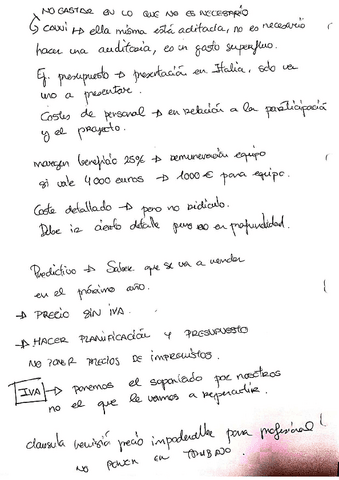 NO GASTAR EN LO QUE NO ES NECESARIO
↳ → ella misma está auditada, no es necesario
hacer una auditoria, es un gasto superfluo.
Ej. presupuesto → presentación en Italia, solo va
uno a presentar.
Costes de personal → en relación a la participación
y el proyecto.
margen beneficio 25% → remuneración equipo
si vale 4000 euros → 1000€ para equipo.
Coste detallado → pero no ridículo.
Debe ir cierto detalle pero no en profundidad.
Predictivo → Saber que se va a vender
en el próximo año.
→ PRECIO SIN IVA.
→ HACER PLANIFICACIÓN Y PRESUPUESTO
NO PONER PRECIOS DE IMPREVISTOS.
IVA → ponemos el soportado por nosotros
no el que le vamos a repercutir.
clausula revisión precio para profesional
NO PONER EN TRABAJO.